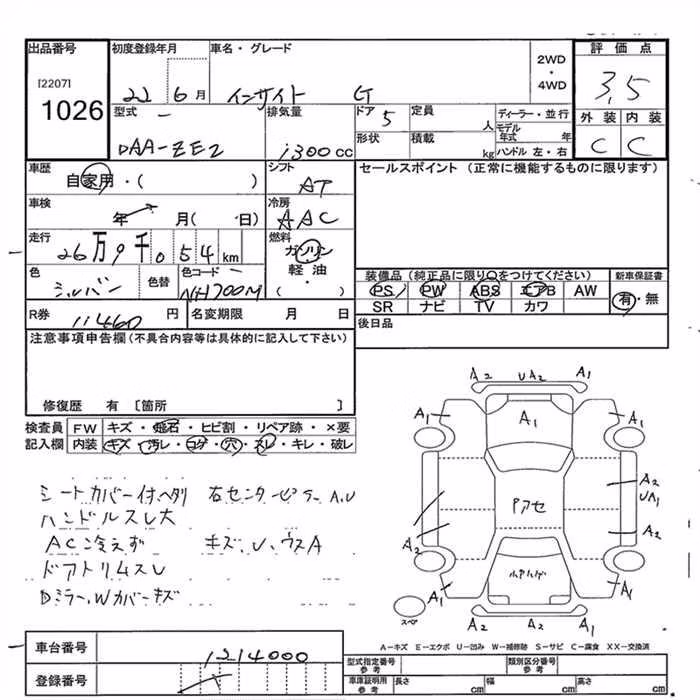 出品番号 初度登録年月 車名・グレード 評価点
[2207] 2WD・4WD 3.5
1026 22 6月 インサイト G
型式 排気量 ドア 5 定員 人 ディーラー・並行 外装 内装
DAA-ZE2 1300cc 形状 積載 kg モデル年式 年 ハンドル 左・右 C C
車歴 自家用・( ) シフト AT セールスポイント (正常に機能するものに限ります)
車検 年 月( 日) 冷房 AAC
走行 26万9千054km 燃料 ガソリン 軽油 ( )
色 シルバー 色替 色コード NH700M 装備品 (純正品に限り〇をつけてください) 新車保証書
PS PW ABS エアB AW 有・無
SR ナビ TV カワ
R券 11460円 名変期限 月 日 後日品
注意事項申告欄(不具合内容等は具体的に記入して下さい)
修復歴 有 〔箇所 〕
検査員 FW キズ・飛石・ヒビ割・リペア跡・×要
記入欄 内装 キズ・汚レ・コゲ・穴・スレ・キレ・破レ
シートカバー付 ヘタリ 右センターピラーA.U
ハンドルスレ大
AC冷えず キズ、U、ウスA
ドアトリムスレ
Dミラー、Wカバーキズ
A2 UA2 A1
A1 A1 A1
Pアセ
A2
UA1
A2 A2
A1 ハゲ A1
スペア A2 A2 A1
A-キズ E-エクボ U-凹み W-補修跡 S-サビ C-腐食 XX-交換済
車台番号 1214000
登録番号
型式指定番号 参考 類別区分番号 参考
車庫証明用 参考 長さ cm 幅 cm 高さ cm